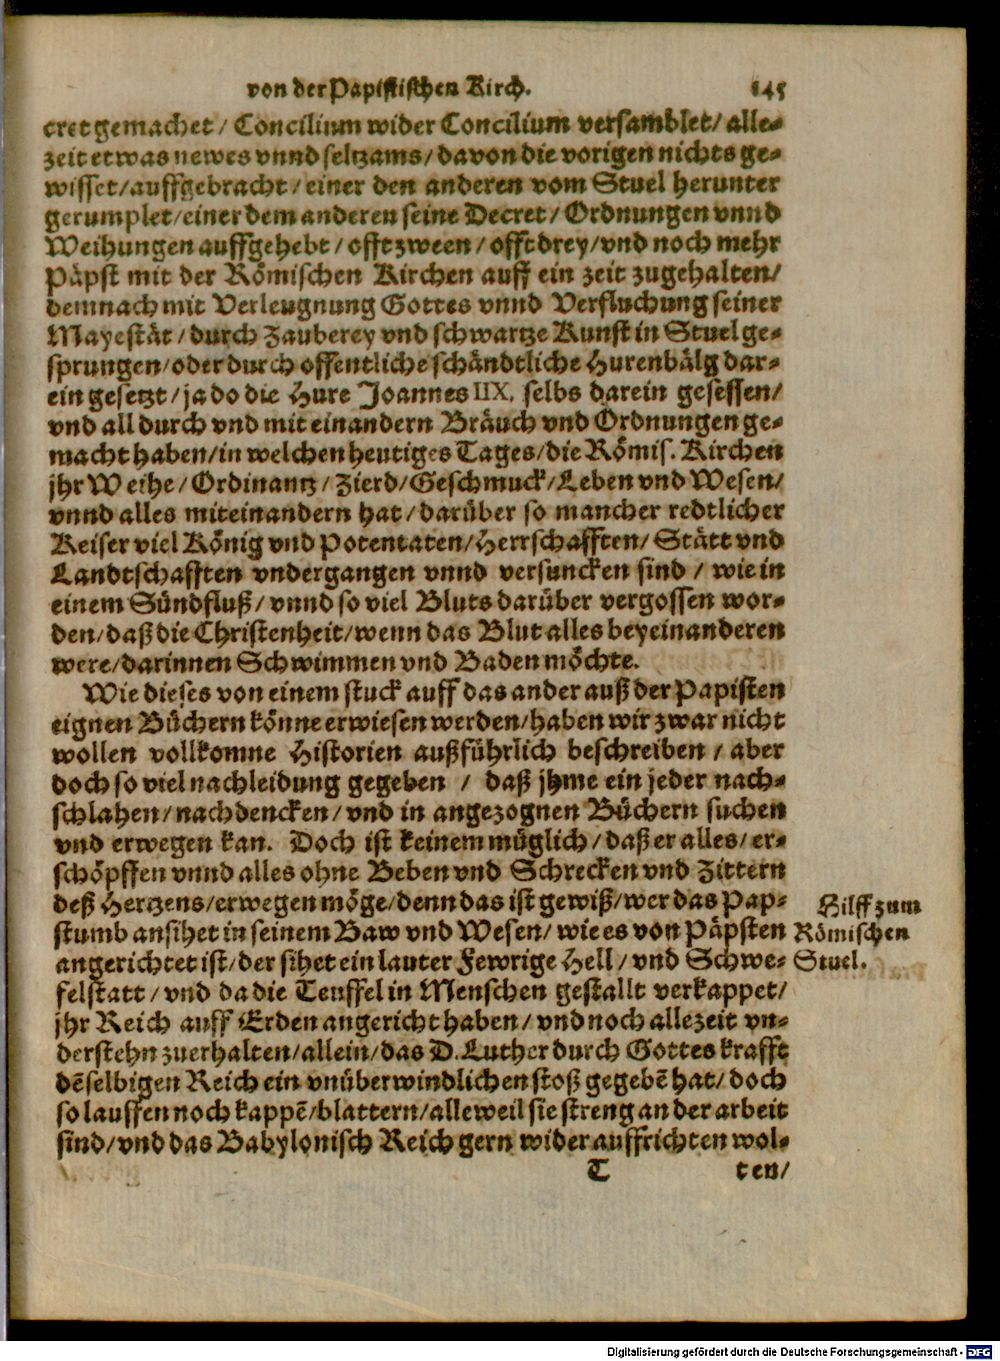 von der Papistischen Kirch. 145
cret gemachet / Concilium wider Concilium versamblet / alle-
zeit etwas newes vnnd seltzams / davon die vorigen nichts ge-
wisset / auffgebracht / einer den anderen vom Stuel herunter
gerumplet / einer dem anderen seine Decret / Ordnungen vnnd
Weihungen auffgehebt / offt zween / offt drey / vnd noch mehr
Päpst mit der Römischen Kirchen auff ein zeit zugehalten /
demnach mit Verleugnung Gottes vnnd Verfluchung seiner
Mayestät / durch Zauberey vnd schwartze Kunst in Stuel ge-
sprungen / oder durch offentliche schändtliche Hurenbälg dar-
ein gesetzt / ja do die Hure Joannes IIX. selbs darein gesessen /
vnd all durch vnd mit einandern Bräuch vnd Ordnungen ge-
macht haben / in welchen heutiges Tages / die Römis. Kirchen
jhr Weihe / Ordinantz / Zierd / Geschmuck / Leben vnd Wesen /
vnnd alles miteinandern hat / darüber so mancher redtlicher
Keiser viel König vnd Potentaten / Herrschafften / Stätt vnd
Landtschafften vndergangen vnnd versuncken sind / wie in
einem Sündfluß / vnnd so viel Bluts darüber vergossen wor-
den / daß die Christenheit / wenn das Blut alles beyeinanderen
were / darinnen Schwimmen vnd Baden möchte.
Wie dieses von einem stuck auff das ander auß der Papisten
eignen Büchern könne erwiesen werden / haben wir zwar nicht
wollen vollkomne Historien außführlich beschreiben / aber
doch so viel nachleidung gegeben / daß jhme ein jeder nach-
schlahen / nachdencken / vnd in angezognen Büchern suchen
vnd erwegen kan. Doch ist keinem müglich / daß er alles / er-
schöpffen vnnd alles ohne Beben vnd Schrecken vnd Zittern
deß Hertzens / erwegen möge / denn das ist gewiß / wer das Pap-
stumb ansihet in seinem Baw vnd Wesen / wie es von Päpsten
angerichtet ist / der sihet ein lauter Fewrige Hell / vnd Schwe-
felstatt / vnd da die Teuffel in Menschen gestallt verkappet /
jhr Reich auff Erden angericht haben / vnd noch allezeit vn-
derstehn zuerhalten / allein / das D. Luther durch Gottes krafft
dẽselbigen Reich ein vnüberwindlichen stoß gegebẽ hat / doch
so lauffen noch kappẽ / blattern / alleweil sie streng an der arbeit
sind / vnd das Babylonisch Reich gern wider auffrichten wol-
T ten /
Hilff zum
Römischen
Stuel.
Digitalisierung gefördert durch die Deutsche Forschungsgemeinschaft - DFG